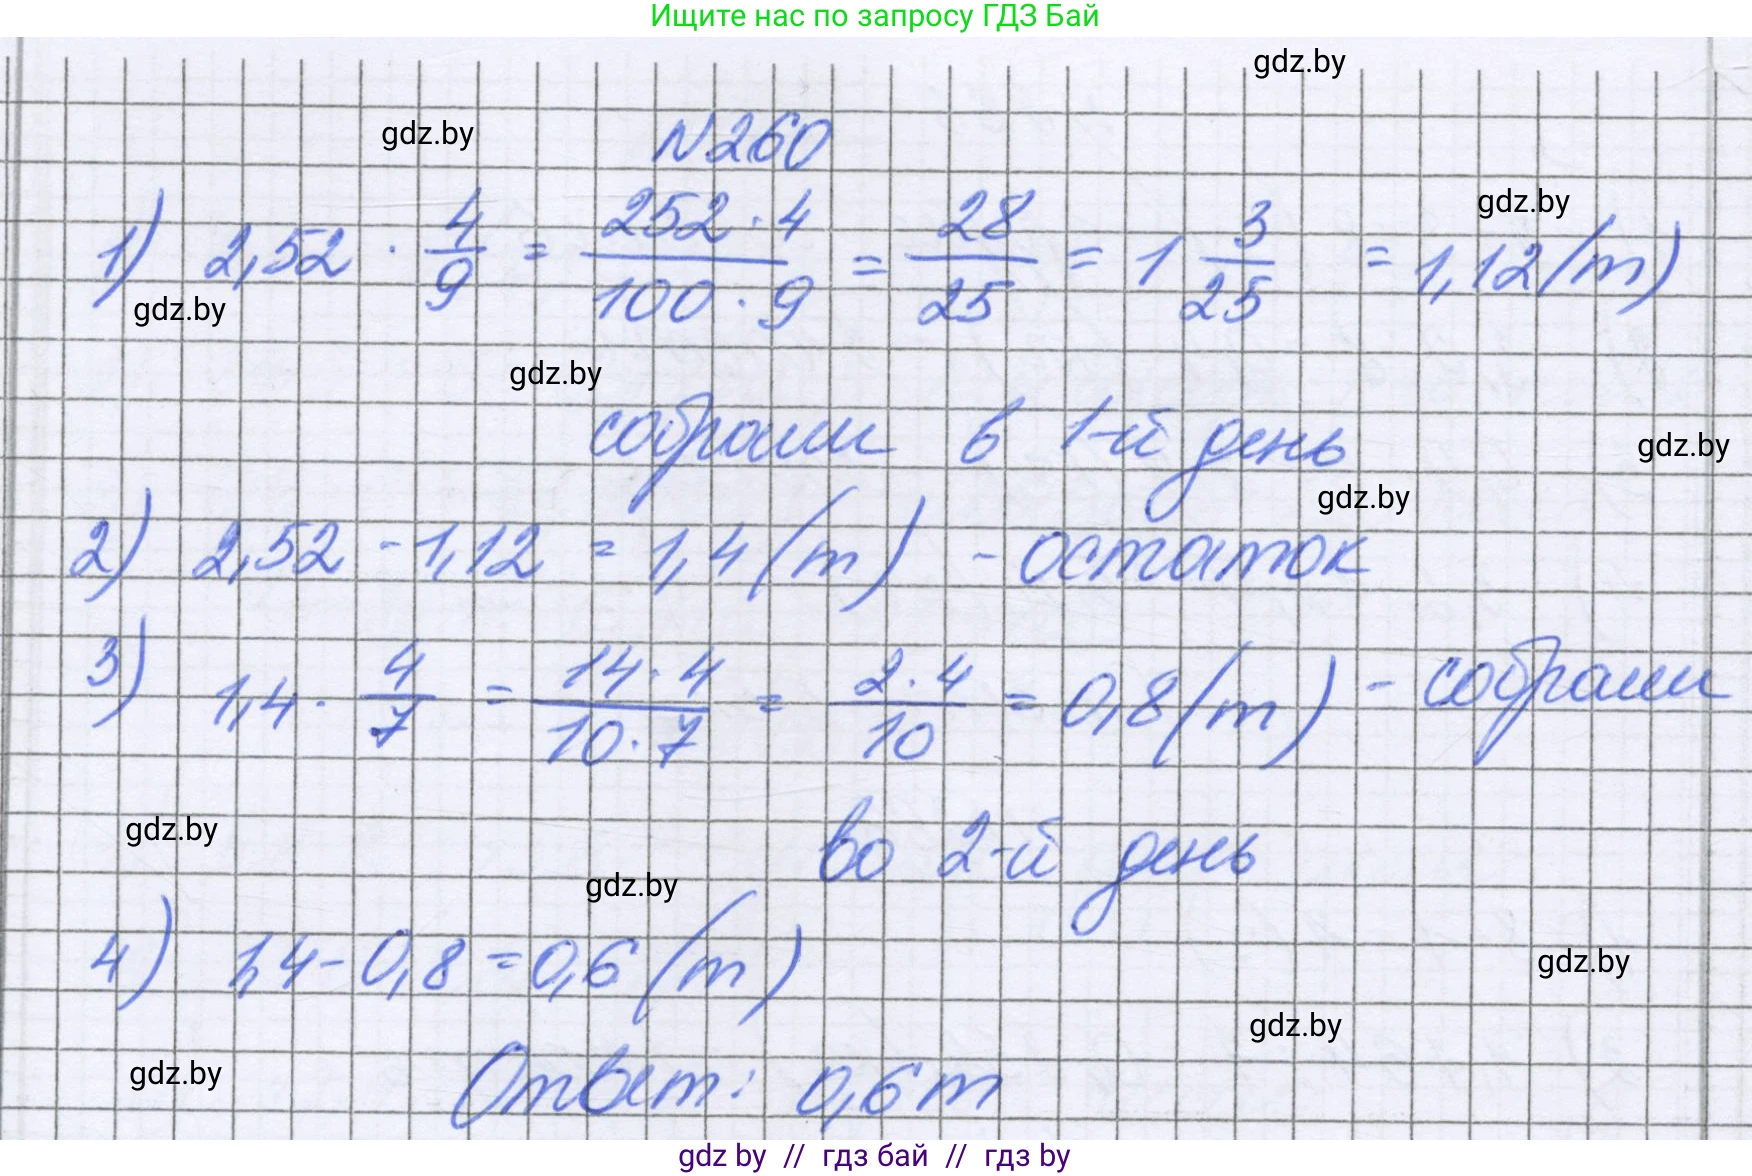 Ищите нас по запросу ГДЗ Бай
gdz.by
gdz.by
N260
gdz.by
1) 2,52 · 4/9 = 252·4/100·9 = 28/25 = 1 3/25 = 1,12(т)
gdz.by
gdz.by
собрали в 1-й день
gdz.by
gdz.by
2) 2,52 - 1,12 = 1,4(т) - остаток
3) 1,4 · 4/7 = 14·4/10·7 = 2·4/10 = 0,8(т) - собрали
gdz.by
во 2-й день
gdz.by
4) 1,4 - 0,8 = 0,6(т)
gdz.by
gdz.by
gdz.by
Ответ: 0,6 т
gdz by // гдз бай // гдз by